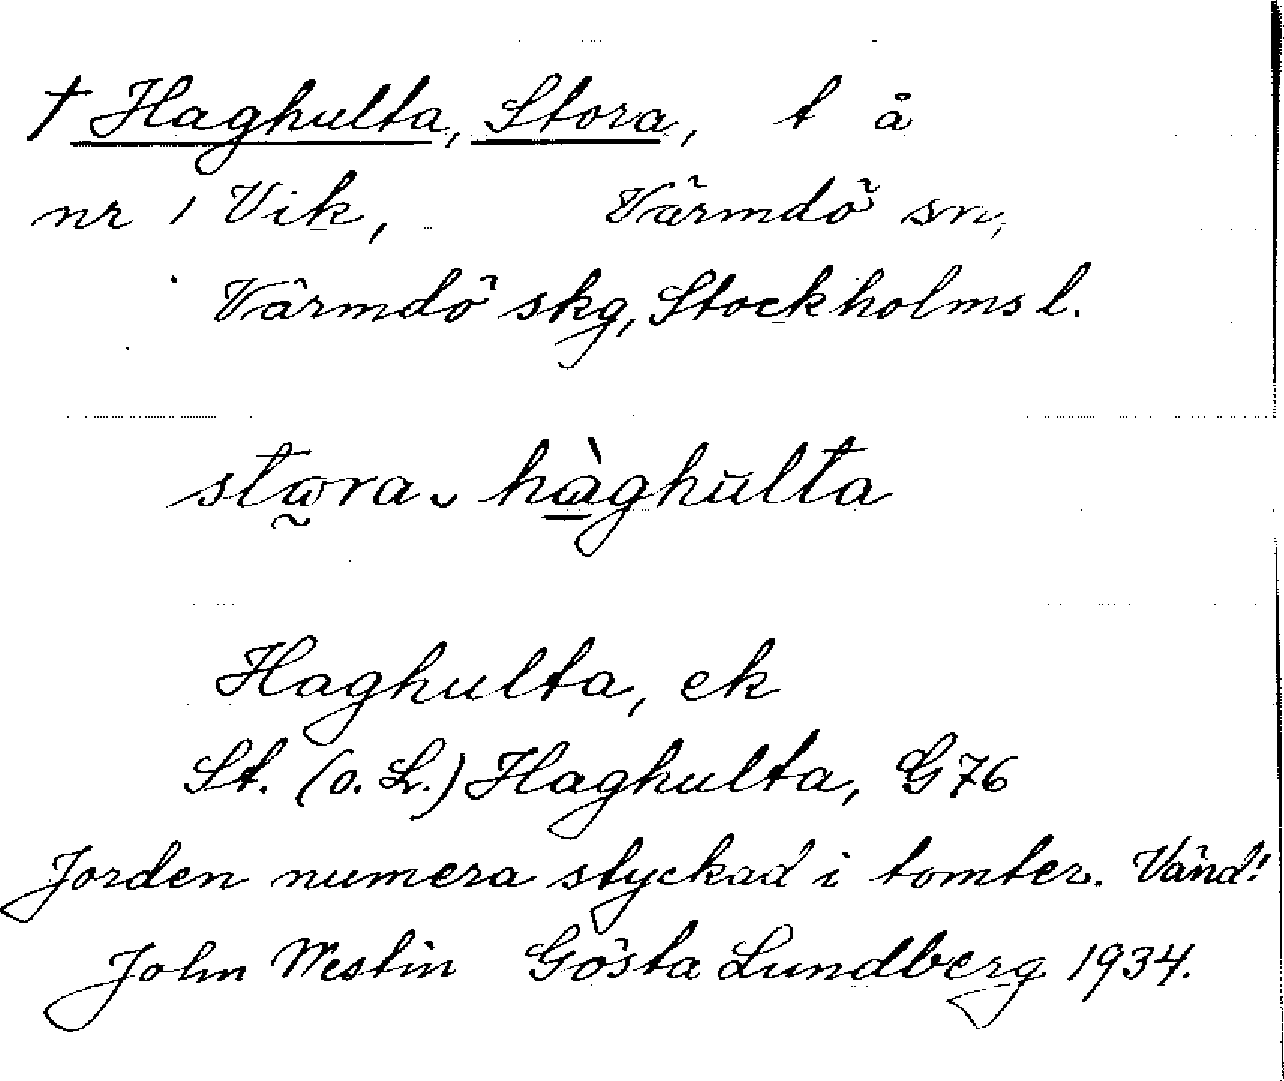 † Haghulta, Stora, t å
nr 1 Vik, Värmdö sn,
Värmdö skg, Stockholms l.
stωra ̮ hàghulta
Haghulta, ek
St. (o. L.) Haghulta, G76
Jorden numera styckad i tomter. Vänd!
John Westin Gösta Lundberg 1934.